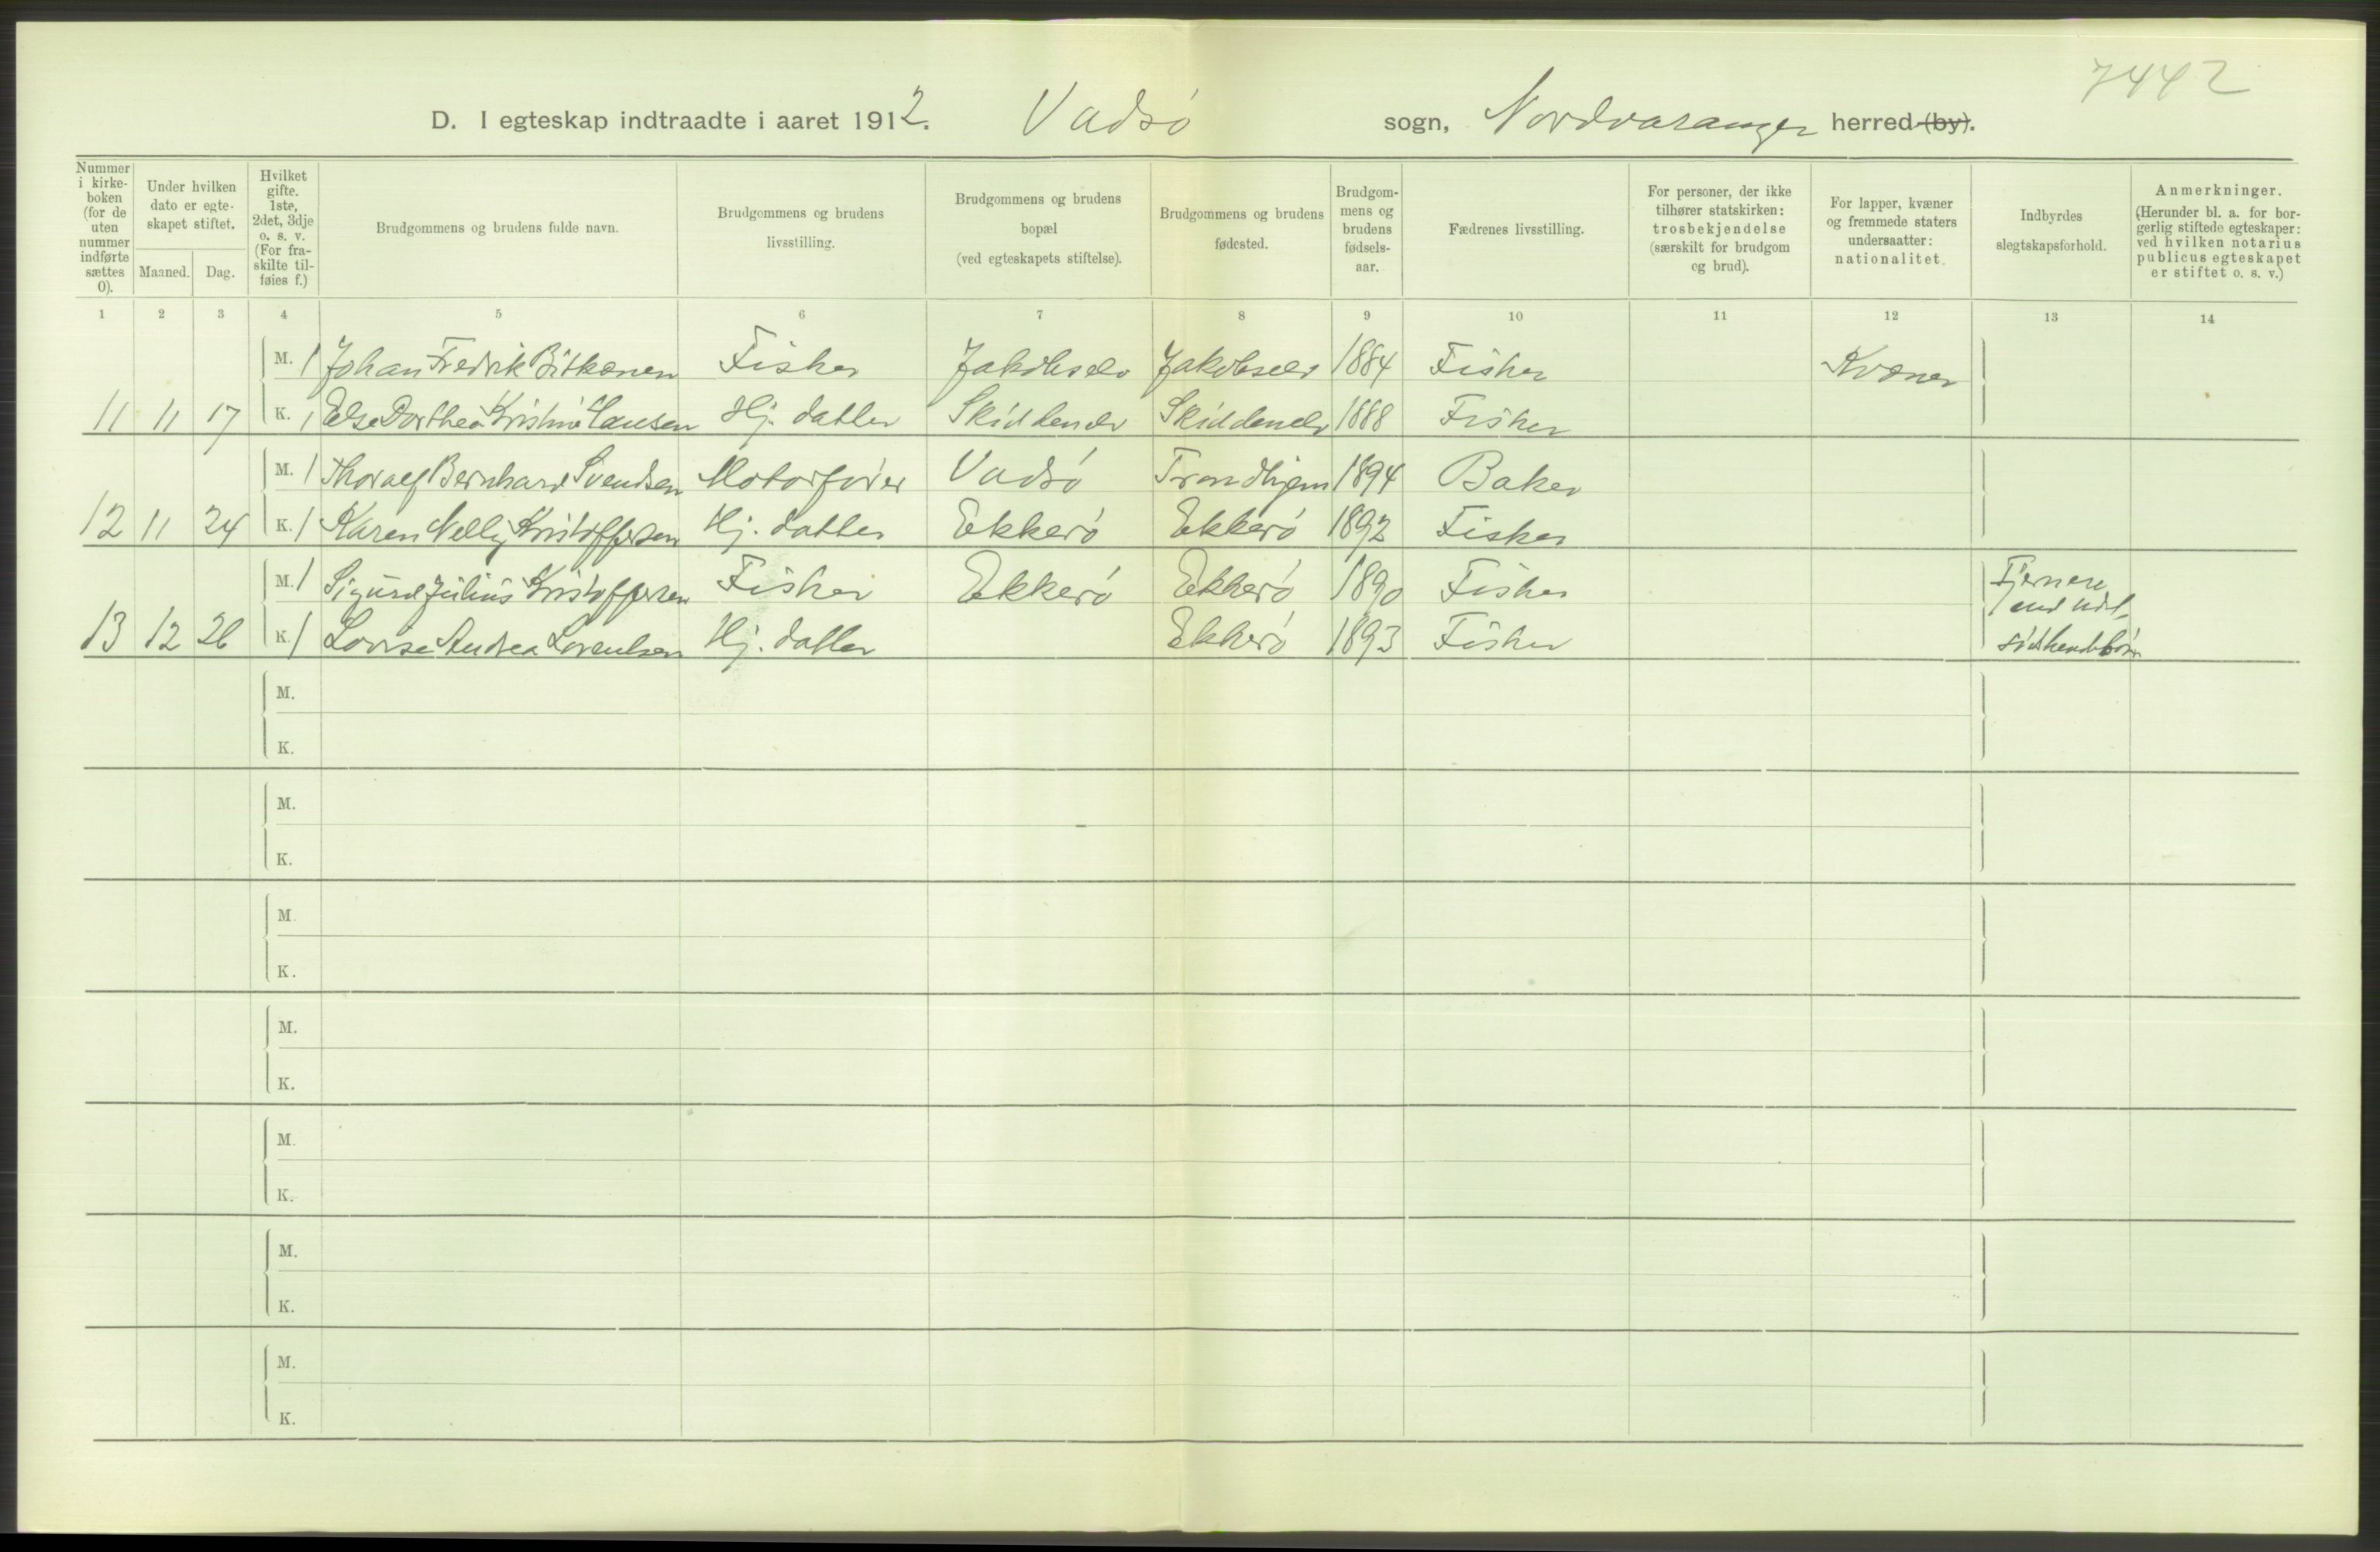 7442
D. I egteskap indtraadte i aaret 1912. Vadsø sogn, Nordvaranger herred (by).
Nummer i kirke- boken (for de uten nummer indførte sættes 0).
Under hvilken dato er egte- skapet stiftet.
Maaned. Dag.
Hvilket gifte. 1ste, 2det, 3dje o. s. v. (For fra- skilte til- føies f.)
Brudgommens og brudens fulde navn.
Brudgommens og brudens livsstilling.
Brudgommens og brudens bopæl (ved egteskapets stiftelse).
Brudgommens og brudens fødested.
Brudgom- mens og brudens fødsels- aar.
Fædrenes livsstilling.
For personer, der ikke tilhører statskirken: trosbekjendelse (særskilt for brudgom og brud).
For lapper, kvæner og fremmede staters undersaatter: nationalitet.
Indbyrdes slegtskapsforhold.
Anmerkninger. (Herunder bl. a. for bor- gerlig stiftede egteskaper: ved hvilken notarius publicus egteskapet er stiftet o. s. v.)
1 2 3 4 5 6 7 8 9 10 11 12 13 14
M. 1 Johan Fredrik Bitkænen Fisker Jakobselv Jakobselv 1884 Fisker Kvæner
11 11 17 K. 1 Else Dorthea Kristine Hansen Hj. datter Skiddenelv Skiddenelv 1888 Fisker
M. 1 Thoralf Bernhard Svendsen Motorfører Vadsø Trondhjem 1894 Baker
12 11 24 K. 1 Karen Nelly Kristoffersen Hj. datter Ekkerø Ekkerø 1892 Fisker
M. 1 Sigurd Julius Kristoffersen Fisker Ekkerø Ekkerø 1890 Fisker Fjernere end
13 12 26 K. 1 Lovise Andrea Lorentsen Hj. datter Ekkerø 1893 Fisker sødskendebørn
M.
K.
M.
K.
M.
K.
M.
K.
M.
K.
M.
K.
M.
K.